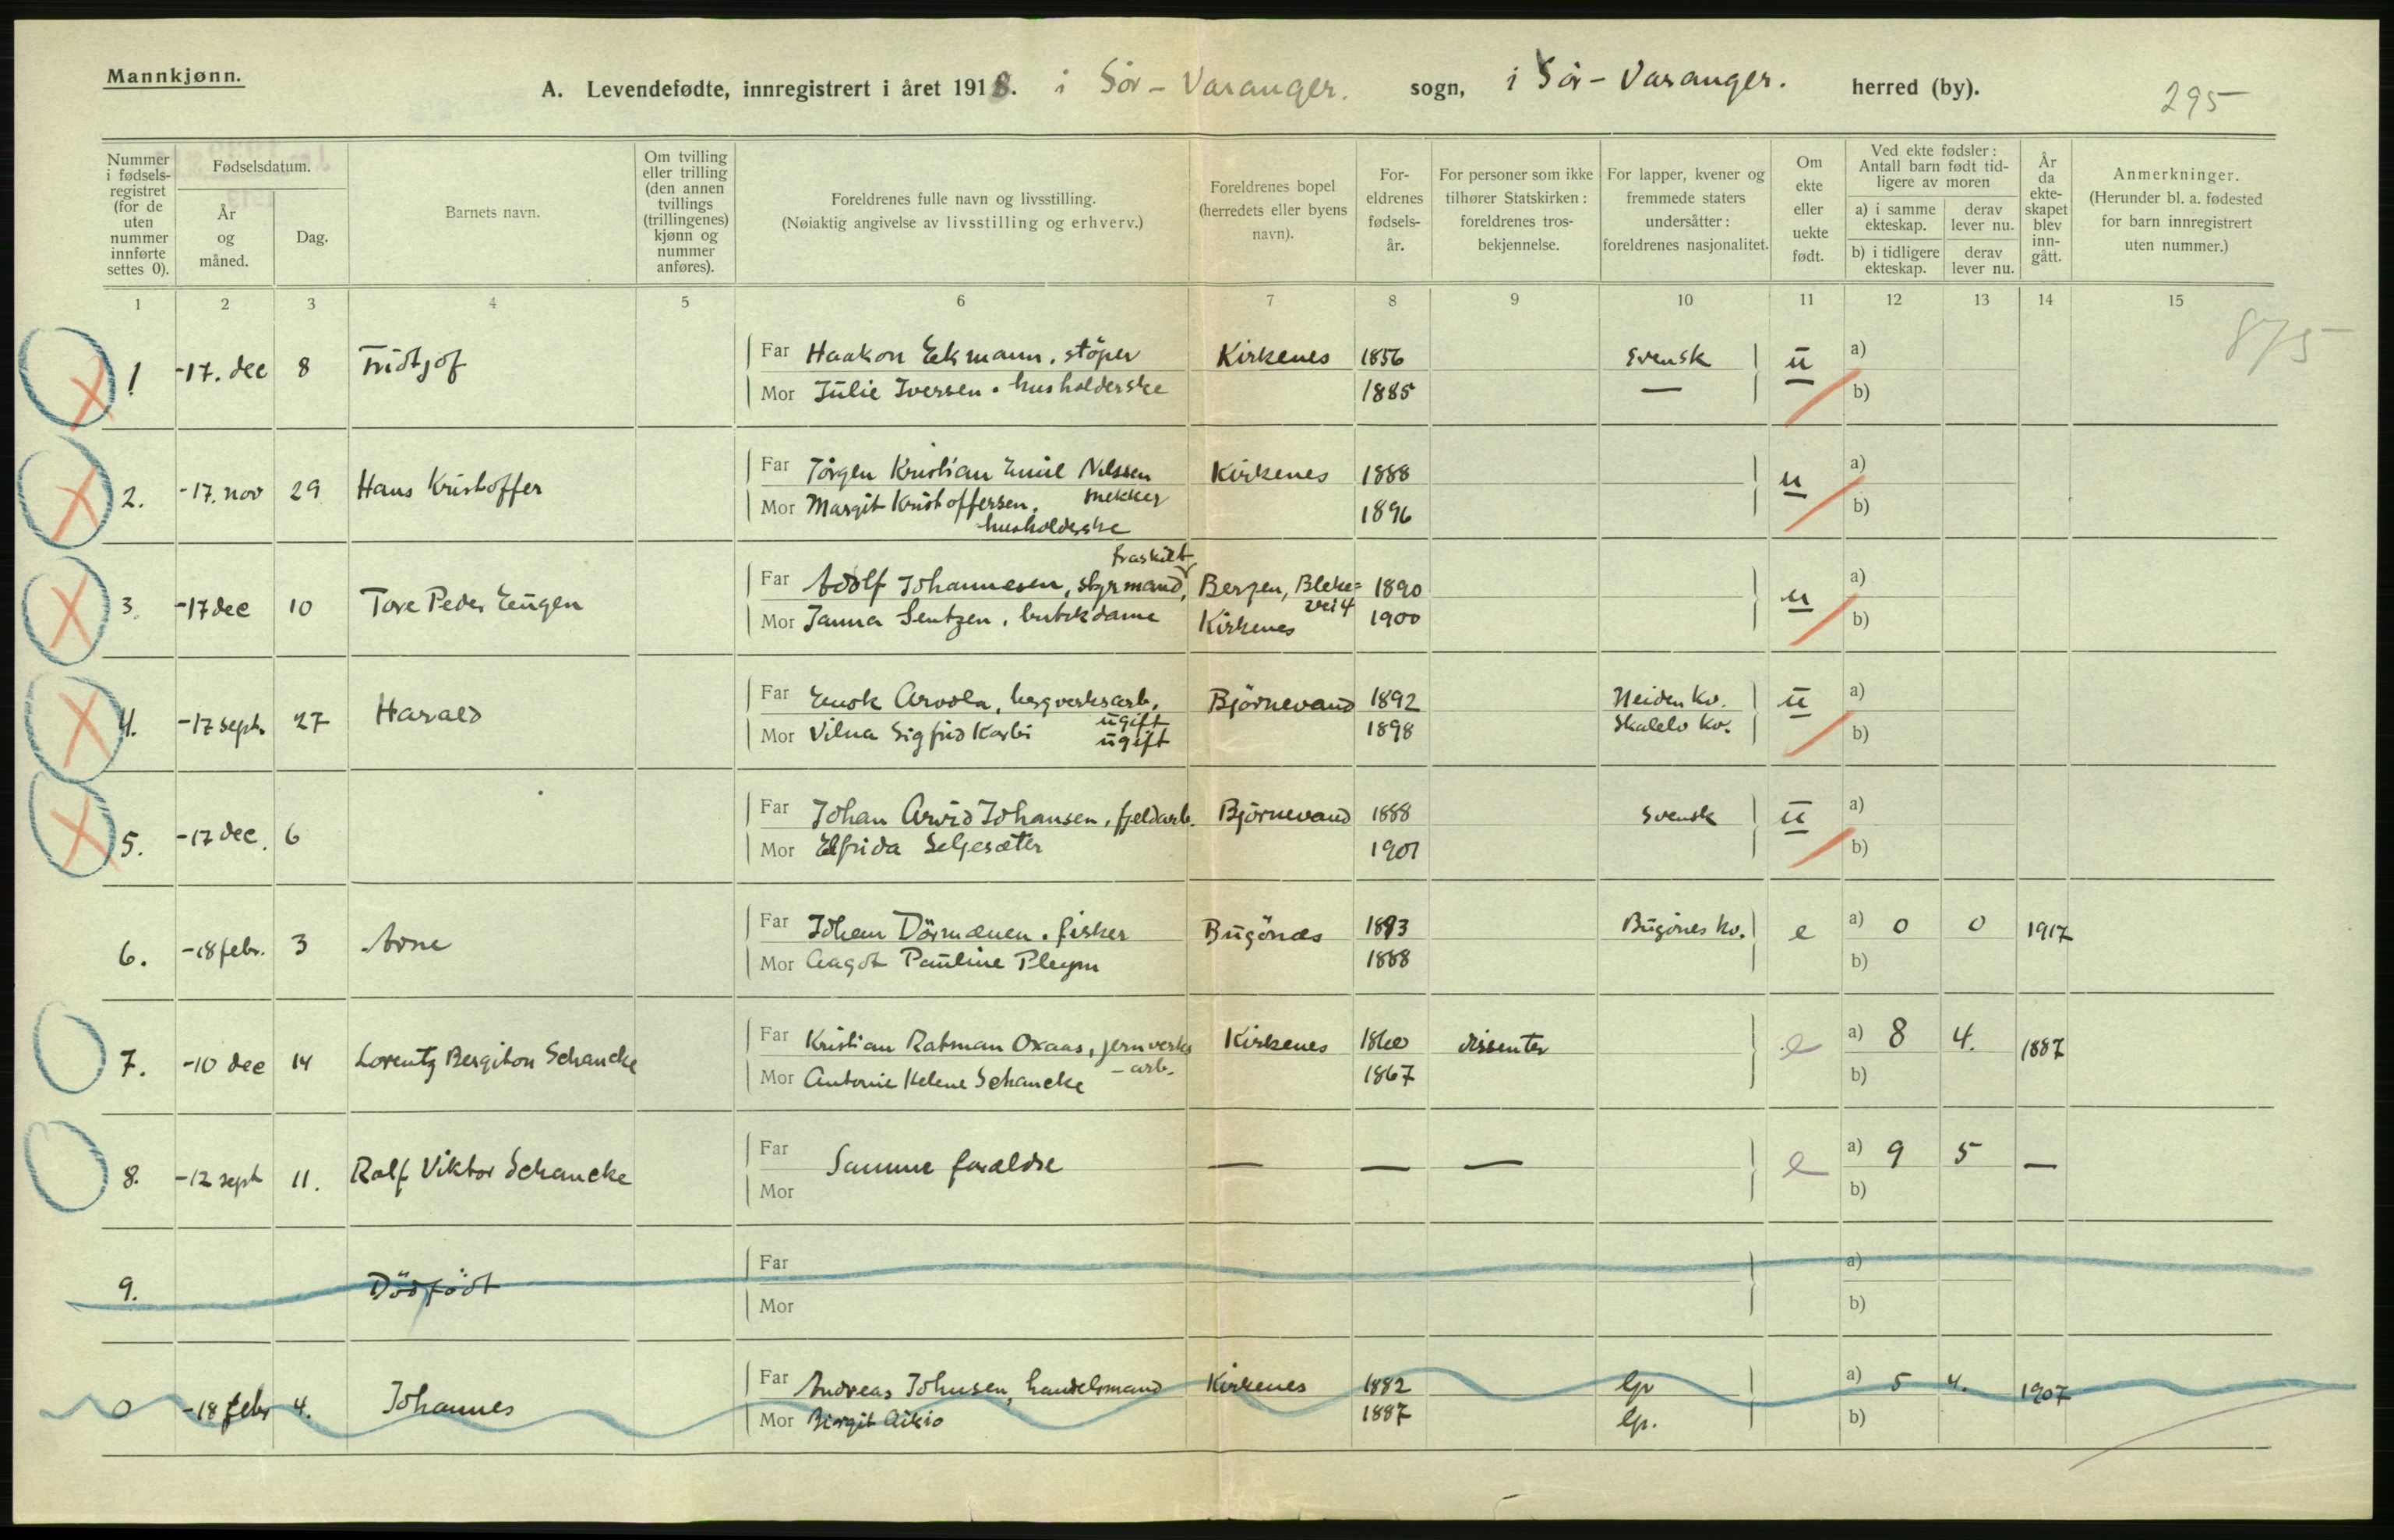 Mannkjønn.
A. Levendefødte, innregistrert i året 1918. i Sör-Varanger. sogn, i Sör-Varanger. herred (by).
295
Nummer i fødselsregistret (for de uten nummer innførte settes 0).
Fødselsdatum.
År og måned.
Dag.
Barnets navn.
Om tvilling eller trilling (den annen tvillings (trillingenes) kjønn og nummer anføres).
Foreldrenes fulle navn og livsstilling.
(Nøiaktig angivelse av livsstilling og erhverv.)
Foreldrenes bopel (herredets eller byens navn).
For-eldrenes fødsels-år.
For personer som ikke tilhører Statskirken: foreldrenes tros-bekjennelse.
For lapper, kvener og fremmede staters undersåtter: foreldrenes nasjonalitet.
Om ekte eller uekte født.
Ved ekte fødsler: Antall barn født tid-ligere av moren
a) i samme ekteskap. derav lever nu.
b) i tidligere ekteskap. derav lever nu.
År da ekte-skapet blev inn-gått.
Anmerkninger.
(Herunder bl. a. fødested for barn innregistrert uten nummer.)
1 2 3 4 5 6 7 8 9 10 11 12 13 14 15
875
1 -17. dec 8 Fridtjof Far Haakon Ekmann. støper Kirkenes 1856 Svensk ü a)
Mor Jülie Iversen. husholderske 1885 — b)
2. -17. nov 29 Hans Kristoffer Far Jörgen Kristian Emil Nilssen Kirkenes 1888 u a)
Mor Margit Kristoffersen. mekker 1896 b)
husholderske
fraskilt
3. -17 dec 10 Tore Peder Eügen Far Adolf Johannesen, styrmand, Bergen, Bleke= 1890 u a)
vei 4
Mor Janna Sentzen, butikdame Kirkenes 1900 b)
4. -17 sept. 27 Harald Far Enok Arvola, bergverksarb. Björnevand 1892 Neiden kv. ü a)
ügift
Mor Vilna Sigfrid Karbi ügift 1898 kv. b)
5. -17 dec. 6 Far Johan Arvid Johansen, fjeldarb. Björnevand 1888 Svensk ü a)
Mor Elfrida Seljesæter 1901 b)
6. -18 febr. 3 Arne Far Johan Dörmænen. fisker Bügönæs 1883 Bügönes kv. e a) 0 0 1917
Mor Aagot Paüline Pleym 1888 b)
7. -10 dec 14 Lorentz Bergiton Schancke Far Kristian Ratman Oxaas, jernverks Kirkenes 1860 dissenter e a) 8 4. 1887
-arb.
Mor Antonie Helene Schancke 1867 b)
8. -12 sept 11. Ralf Viktor Schancke Far Samme forældre — — — e a) 9 5 —
Mor b)
9. Dödfödt Far a)
Mor b)
0 -18 febr 4. Johannes Far Andreas Johnsen, handelsmand Kirkenes 1882 lp a) 5 4. 1907
Mor Birgit Aikio 1887 lp. b)